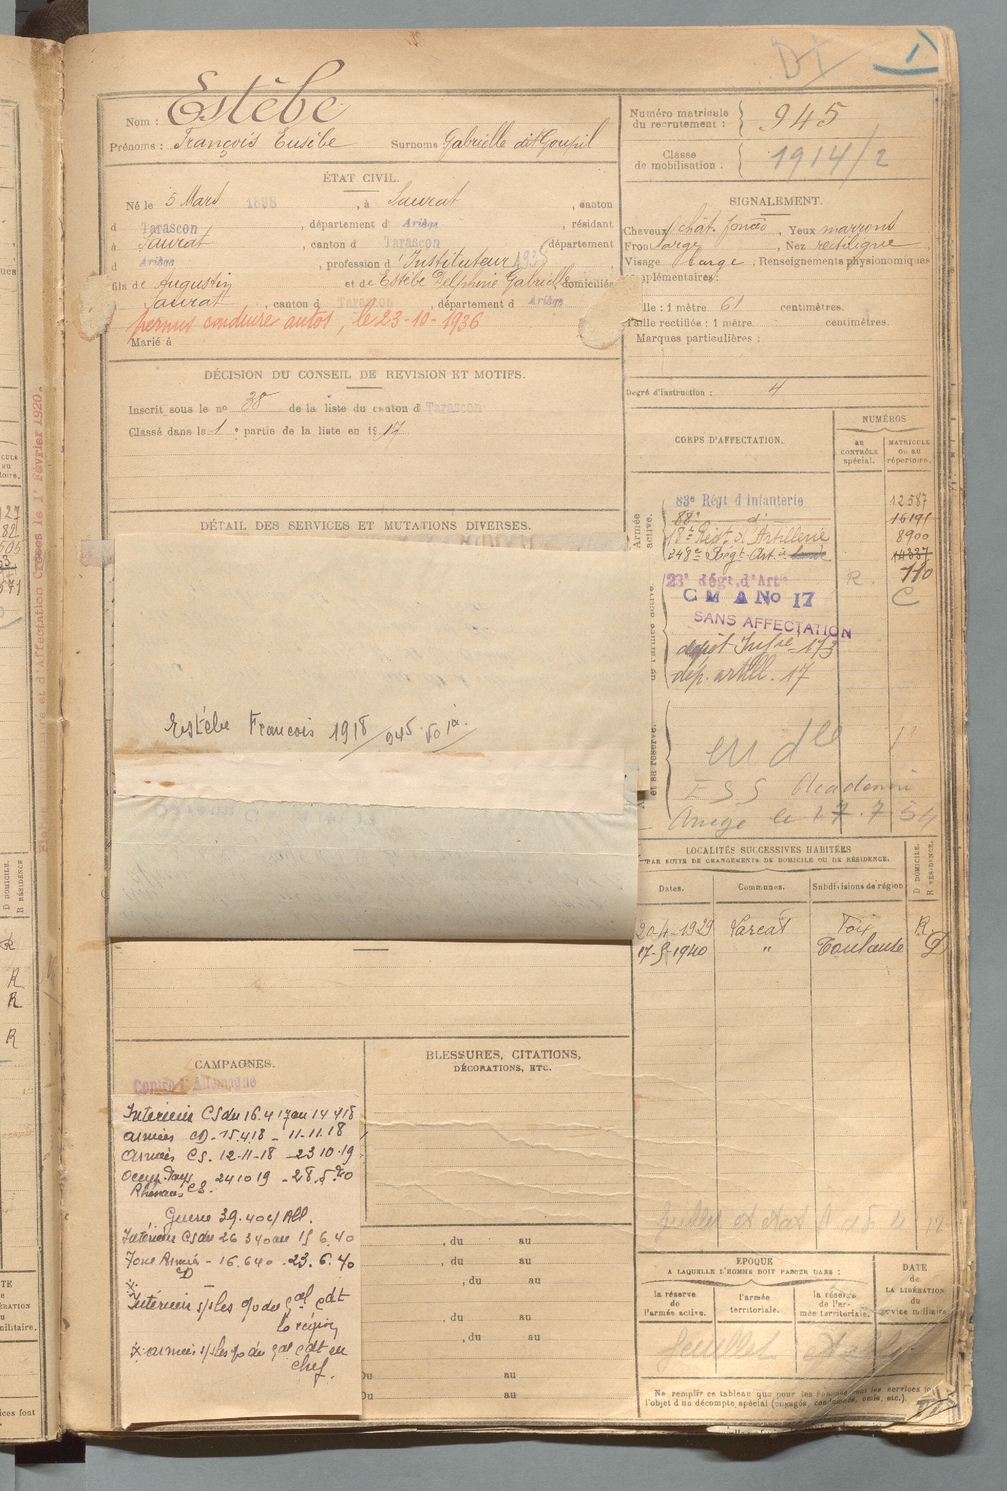 1
Nom : Estèbe
Prénoms : François Eusèbe Surnoms Gabrielle dit Goupil
ÉTAT CIVIL.
Né le 5 Mars 1898, à Saurat, canton
d Tarascon, département d Ariège, résidant
à Saurat, canton d Tarascon département
d Ariège, profession d'Instituteur 1935
fils de Augustin et de Estèbe Delphine Gabrielle domiciliés
Saurat, canton d Tarascon, département d Ariège
permis conduire autos, le 23-10-1936
Marié à
DÉCISION DU CONSEIL DE REVISION ET MOTIFS.
Inscrit sous le no 38 de la liste du canton d Tarascon
Classé dans le 1e partie de la liste en 1917
DÉTAIL DES SERVICES ET MUTATIONS DIVERSES.
Estèbe François 1918 945
CAMPAGNES.
Contre l'Allemagne
Intérieur CS du 16.4 17 au 14 4 18
Armées CD - 15.4.18 - 11-11.18
Armées CS. 12-11-18 - 23 10.19
Occup. Pays Rhénans CS. 24 10 19 - 28.5.20
Guerre 39.40 c/ All.
Intérieur CS du 26 3 40 au 15 6.40
Zone Armées CD - 16.6 40 - 23.6.40
Intérieur s/s les o/ du gal cdt
la région
x: armées s/s les o/ du gal cdt en
chef.
BLESSURES, CITATIONS,
DÉCORATIONS, ETC.
, du au
, du au
, du au
, du au
, du au
Du au
Du au
Numéro matricule
du recrutement : 945
Classe
de mobilisation . 1914/2
SIGNALEMENT.
Cheveux chât. foncé, Yeux marrons
Front large, Nez rectiligne
Visage large, Renseignements physionomiques
supplémentaires :
Taille : 1 mètre 61 centimètres.
Taille rectifiée : 1 mètre centimètres.
Marques particulières :
Degré d'instruction : 4
CORPS D'AFFECTATION.
NUMÉROS
au
contrôle
spécial.
MATRICULE
ou au
répertoire.
Armée
active.
83e Régt d'Infanterie 12587
88e di 16191
18e Régt d'Artillerie 8900
248e Régt Art. 14337
23e Régt d'Artie R. 710
C M A No 17 C
SANS AFFECTATION
dépôt Infie 173
dép. artill. 17
en dee
Ariège le 17.7.54
LOCALITÉS SUCCESSIVES HABITÉES
PAR SUITE DE CHANGEMENTS DE DOMICILE OU DE RÉSIDENCE.
Dates. Communes. Subdivisions de région
D DOMICILE.
R RÉSIDENCE.
20-4-1929 Varcat Foix R
17-5-1940 " Toulouse D
EPOQUE
A LAQUELLE L'HOMME DOIT PASSER DANS :
DATE
de
LA LIBÉRATION
du
service militaire.
la réserve
de
l'armée active.
l'armée
territoriale.
la réserve
de l'ar-
mée territoriale.
Ne remplir ce tableau que pour les hommes dont les services font
l'objet d'un décompte spécial (engagés, condamnés, omis, etc.).